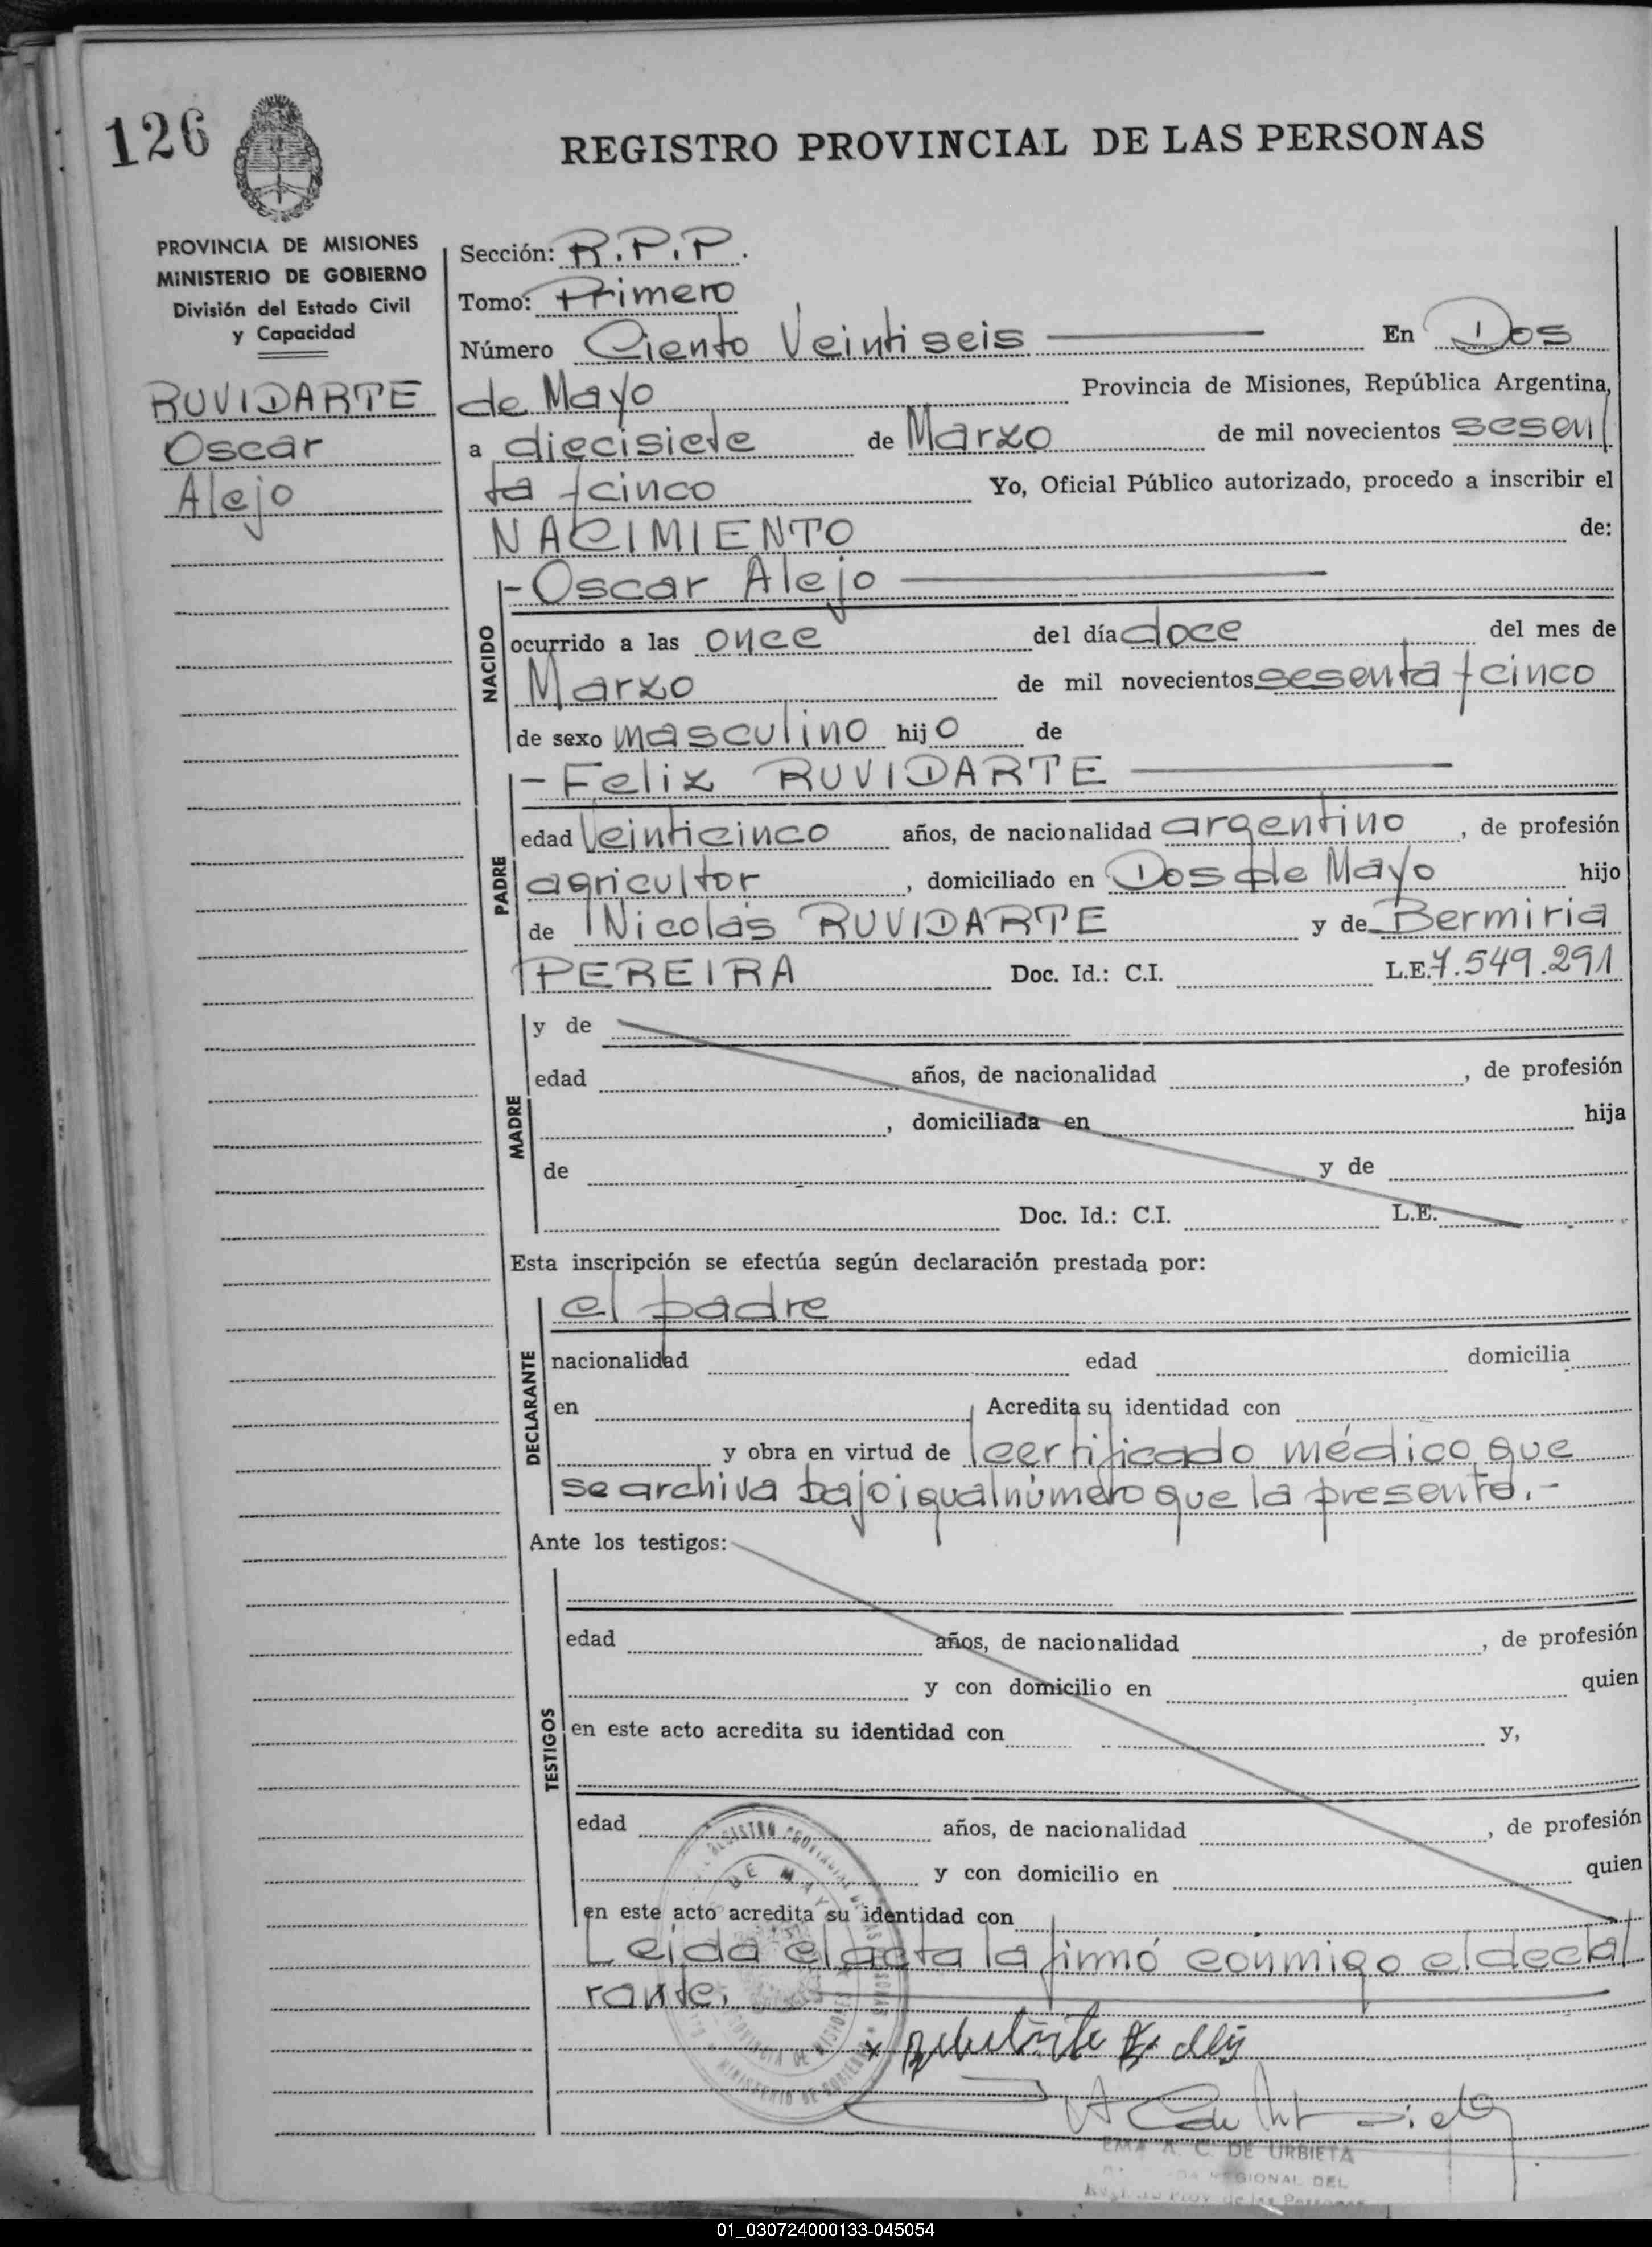 126
REGISTRO PROVINCIAL DE LAS PERSONAS
PROVINCIA DE MISIONES
MINISTERIO DE GOBIERNO
División del Estado Civil
y Capacidad
RUVIDARTE
Oscar
Alejo
Sección: R.P.P.
Tomo: Primero
Número Ciento Veintiseis En Dos
de Mayo Provincia de Misiones, República Argentina,
a diecisiete de Marzo de mil novecientos sesen
ta y cinco Yo, Oficial Público autorizado, procedo a inscribir el
NACIMIENTO de:
NACIDO
- Oscar Alejo
ocurrido a las once del día doce del mes de
Marzo de mil novecientos sesenta y cinco
de sexo masculino hijo de
PADRE
- Feliz RUVIDARTE
edad Veinticinco años, de nacionalidad argentino, de profesión
agricultor, domiciliado en Dos de Mayo hijo
de Nicolás RUVIDARTE y de Bermiria
PEREIRA Doc. Id.: C.I. L.E. 7.549.291
MADRE
y de
edad años, de nacionalidad , de profesión
, domiciliada en hija
de y de
Doc. Id.: C.I. L.E.
Esta inscripción se efectúa según declaración prestada por:
DECLARANTE
el padre
nacionalidad edad domicilia
en Acredita su identidad con
y obra en virtud de certificado médico que
se archiva bajo igual número que la presente.-
Ante los testigos:
TESTIGOS
edad años, de nacionalidad , de profesión
y con domicilio en quien
en este acto acredita su identidad con y,
edad años, de nacionalidad , de profesión
y con domicilio en quien
en este acto acredita su identidad con
Leída el acta la firmó conmigo el decla
rante.
EMA A. C. DE URBIETA
REGIONAL DEL
01_030724000133-045054